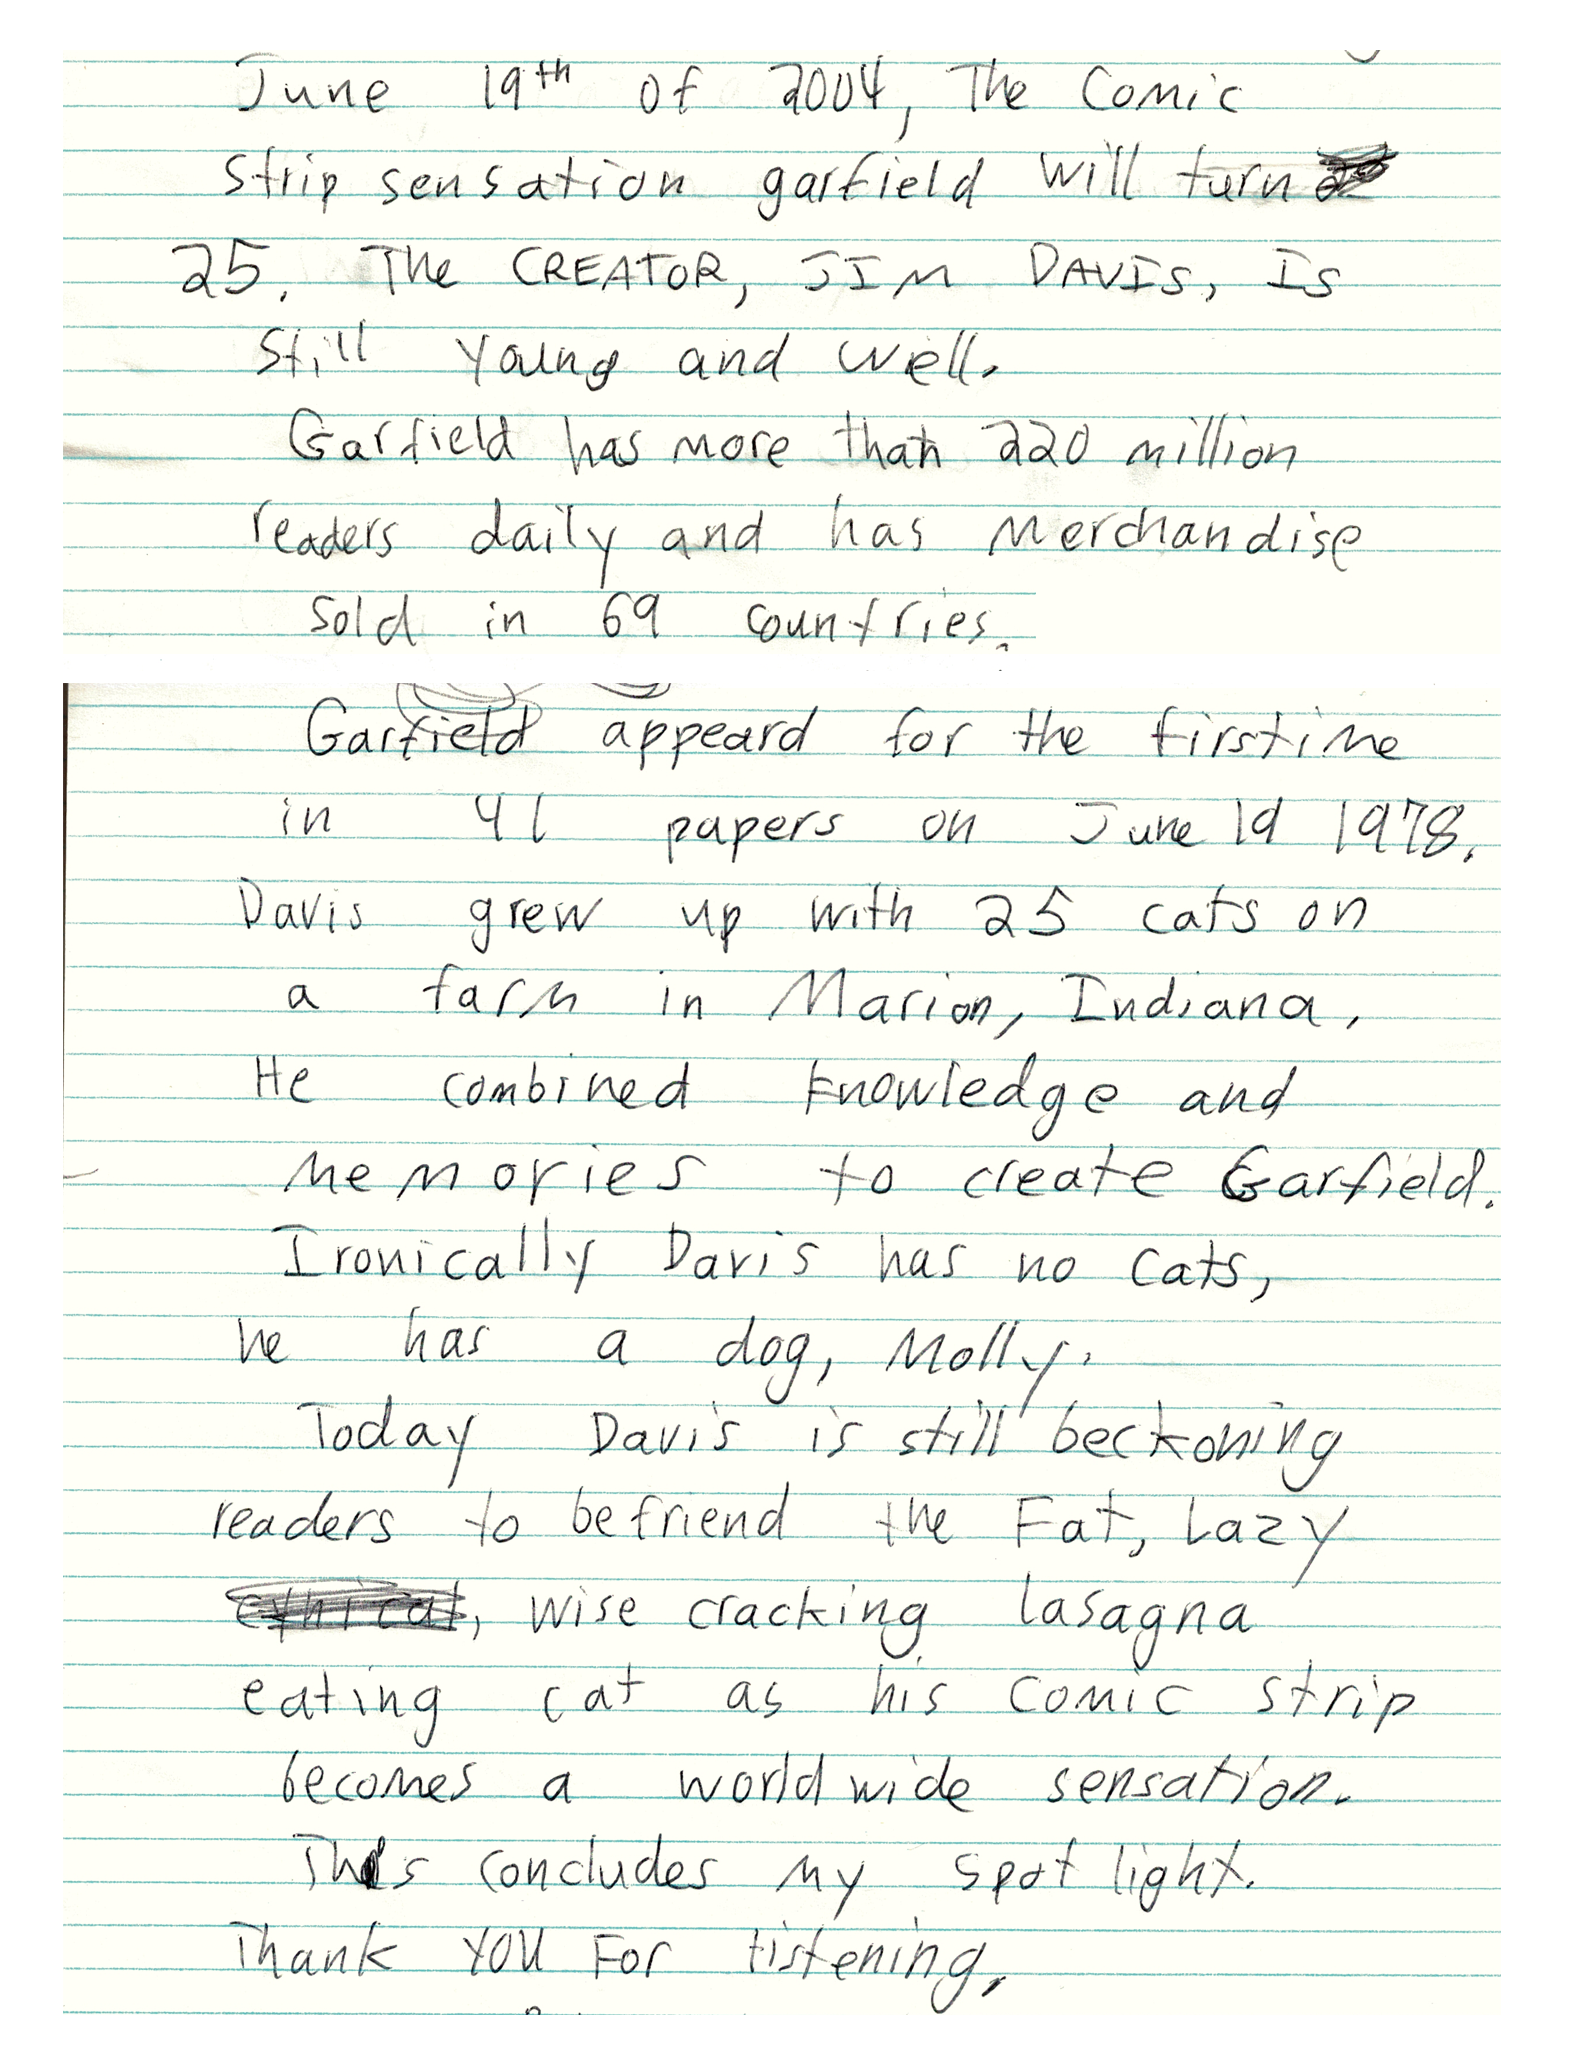 June 19th of 2004, The Comic
strip sensation garfield will turn
25. The CREATOR, JIM DAVIS, Is
still young and well.
Garfield has more than 220 million
readers daily and has merchandise
sold in 69 countries.
Garfield appeard for the firstime
in 41 papers on June 19 1978.
Davis grew up with 25 cats on
a farm in Marion, Indiana,
He combined knowledge and
memories to create Garfield.
Ironically Davis has no cats,
he has a dog, Molly.
Today Davis is still beckoning
readers to befriend the Fat, Lazy
cynical, wise cracking lasagna
eating cat as his comic strip
becomes a world wide sensation.
This concludes my spot light.
Thank YOU For listening.